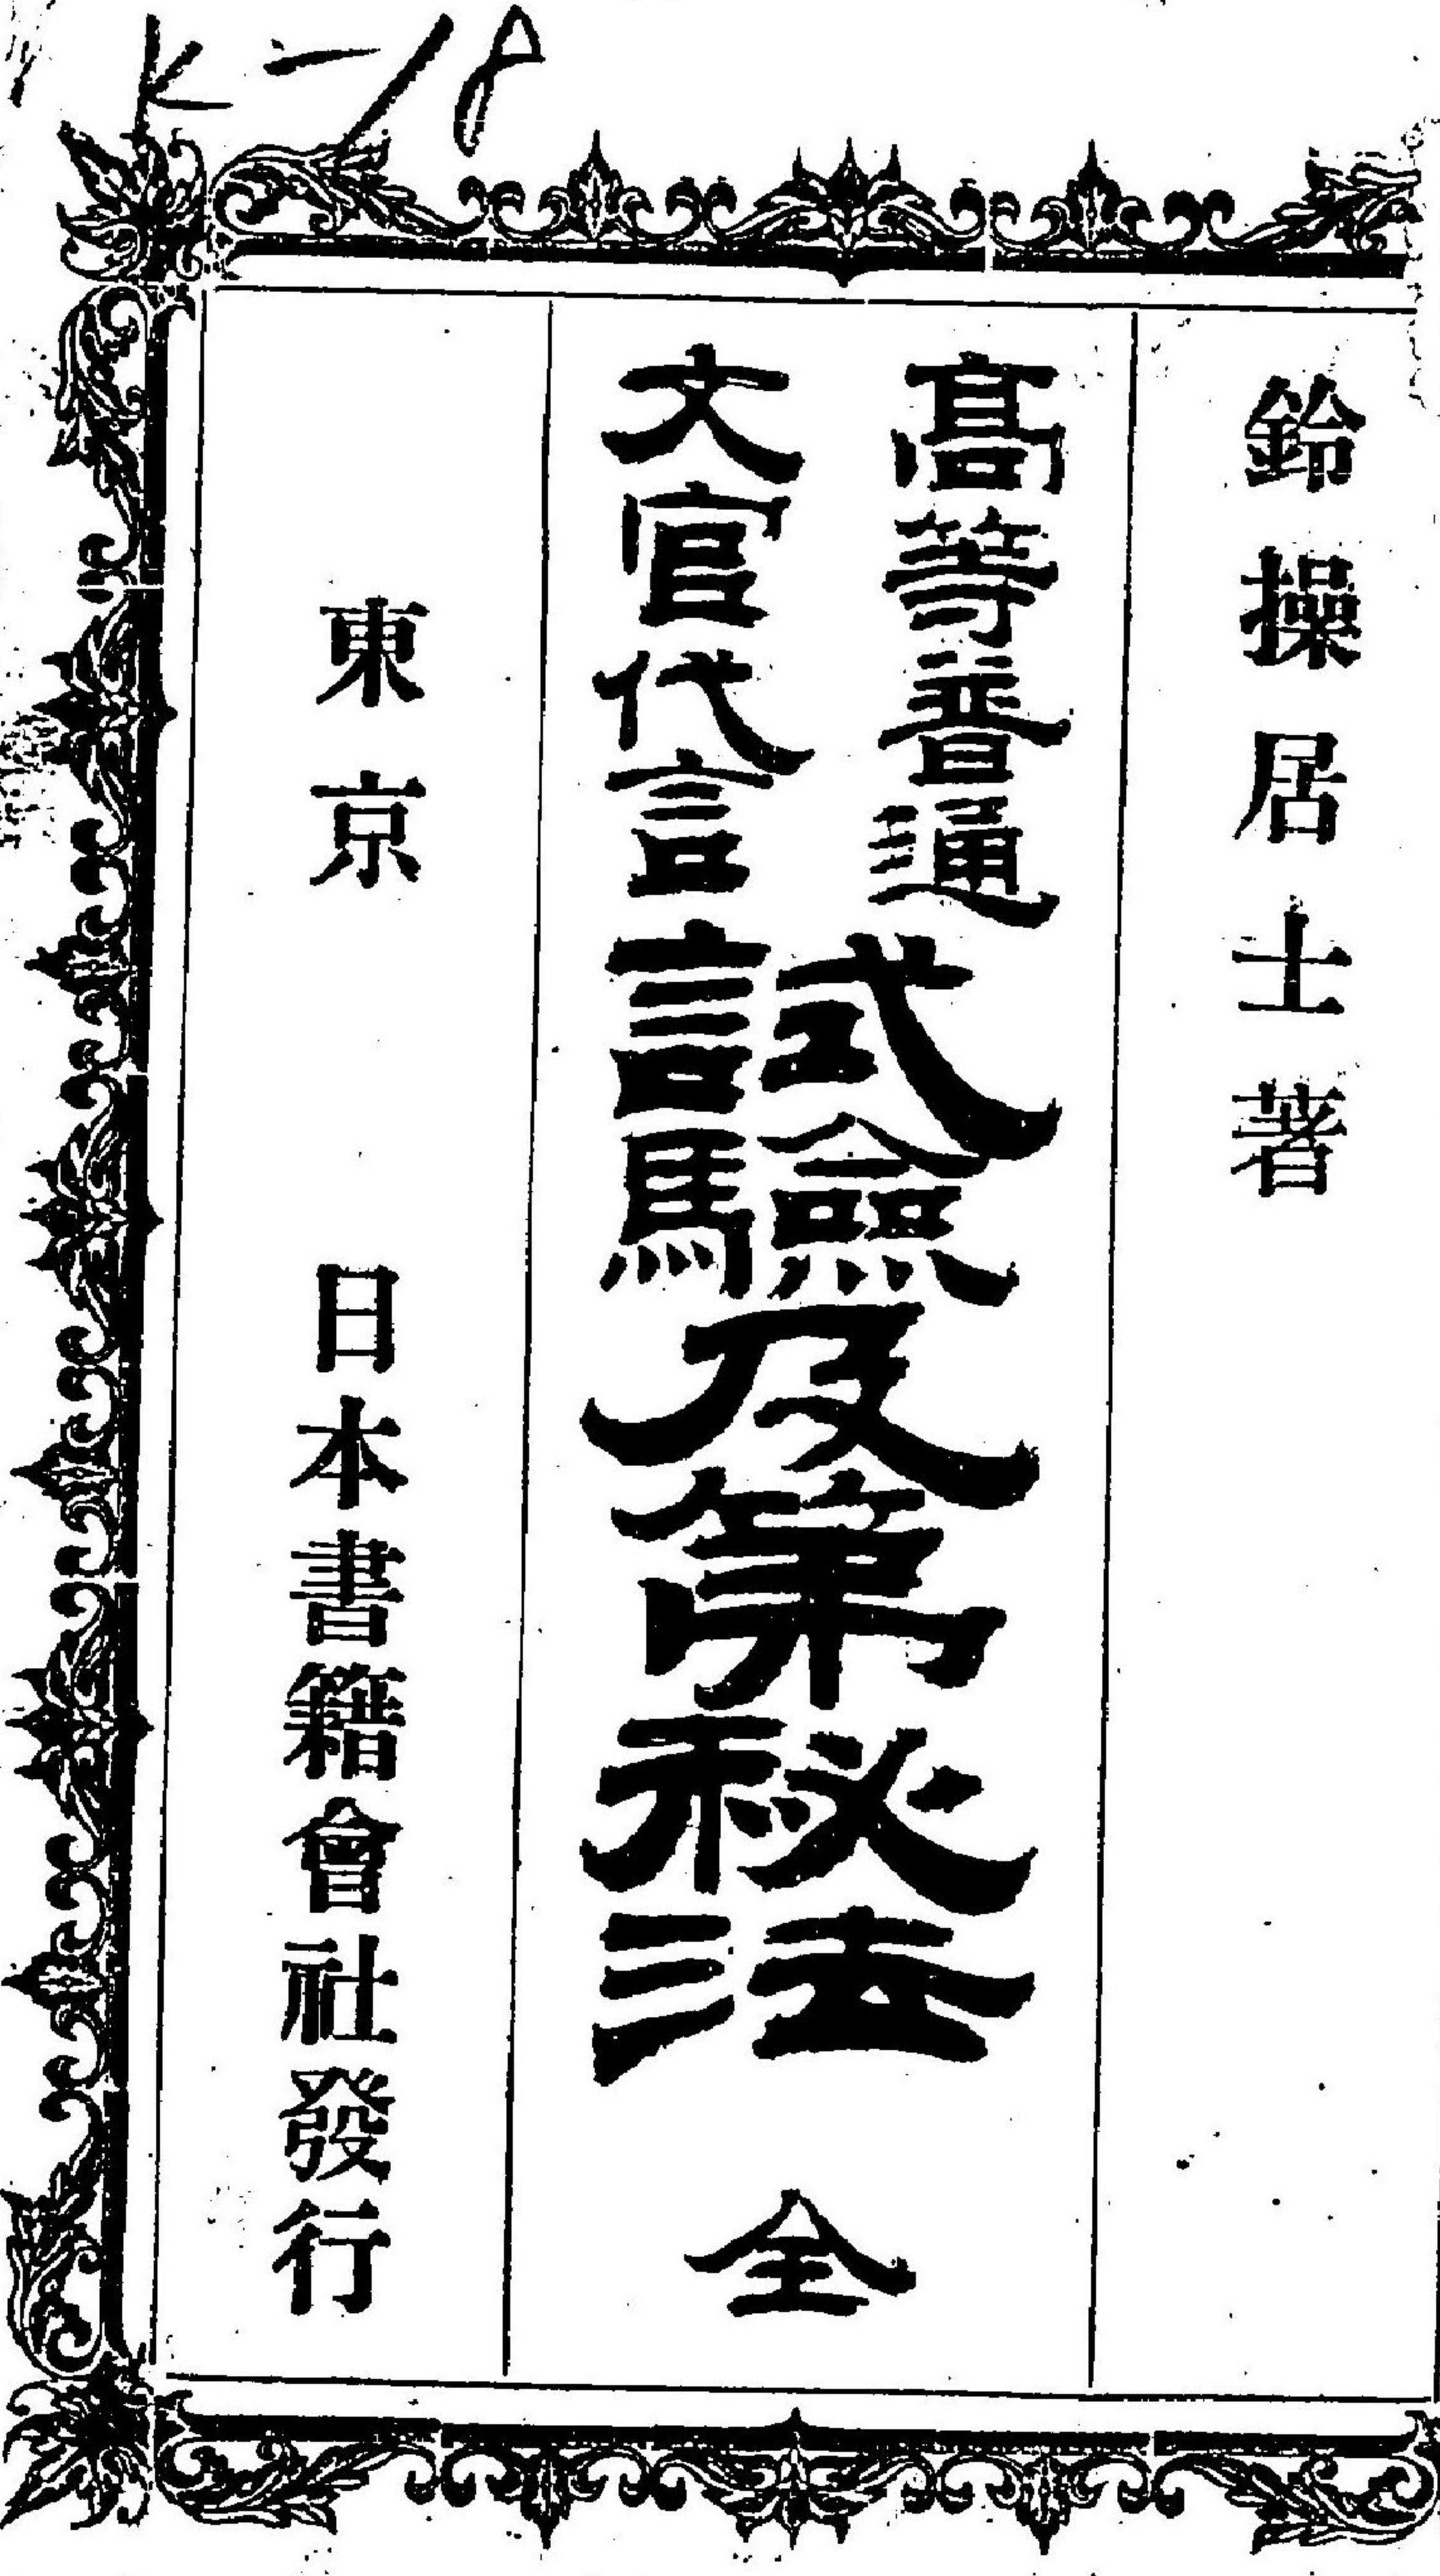 K-18
鈴操居士著
高等普通
文官代言
試驗及第秘法 全
東京 日本書籍會社發行